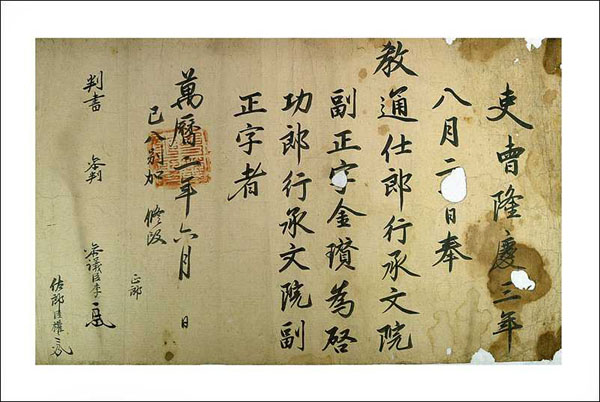 吏曺隆慶三年
八月二日奉
教通仕郎行承文院
副正字金瓚為啓
功郎行承文院副
正字者
萬曆年六月 日
別加
正郎
判書 參判 參議臣李
佐郎臣權